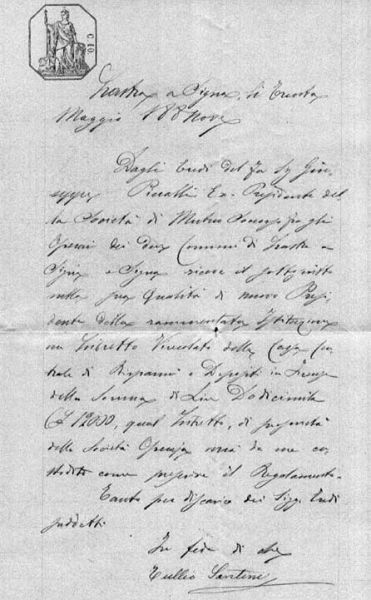 C. 10.
Lastra a Signa, li Trenta
Maggio 188nove
Dagli Eredi del fu Sig Giu-
seppe Pieralli Ex-Presidente del
la Società di Mutuo Soccorso fra gli
Operai dei due Comuni di Lastra a
Signa e Signa riceve il sottoscritto
nella sua qualità di nuovo Presi
dente della rammentata Istituzione
un Libretto Vincolato della Cassa Cen
trale di Risparmi e Depositi in Firenze
della Somma di Lire Dodicimila
(£ 12000, qual Libretto, di proprietà
della Società Operaja verrà da me cu
stodito come prescrive il Regolamento.
Tanto per discarico dei Sigg. Eredi
suddetti
In fede di che
Tullio Santini